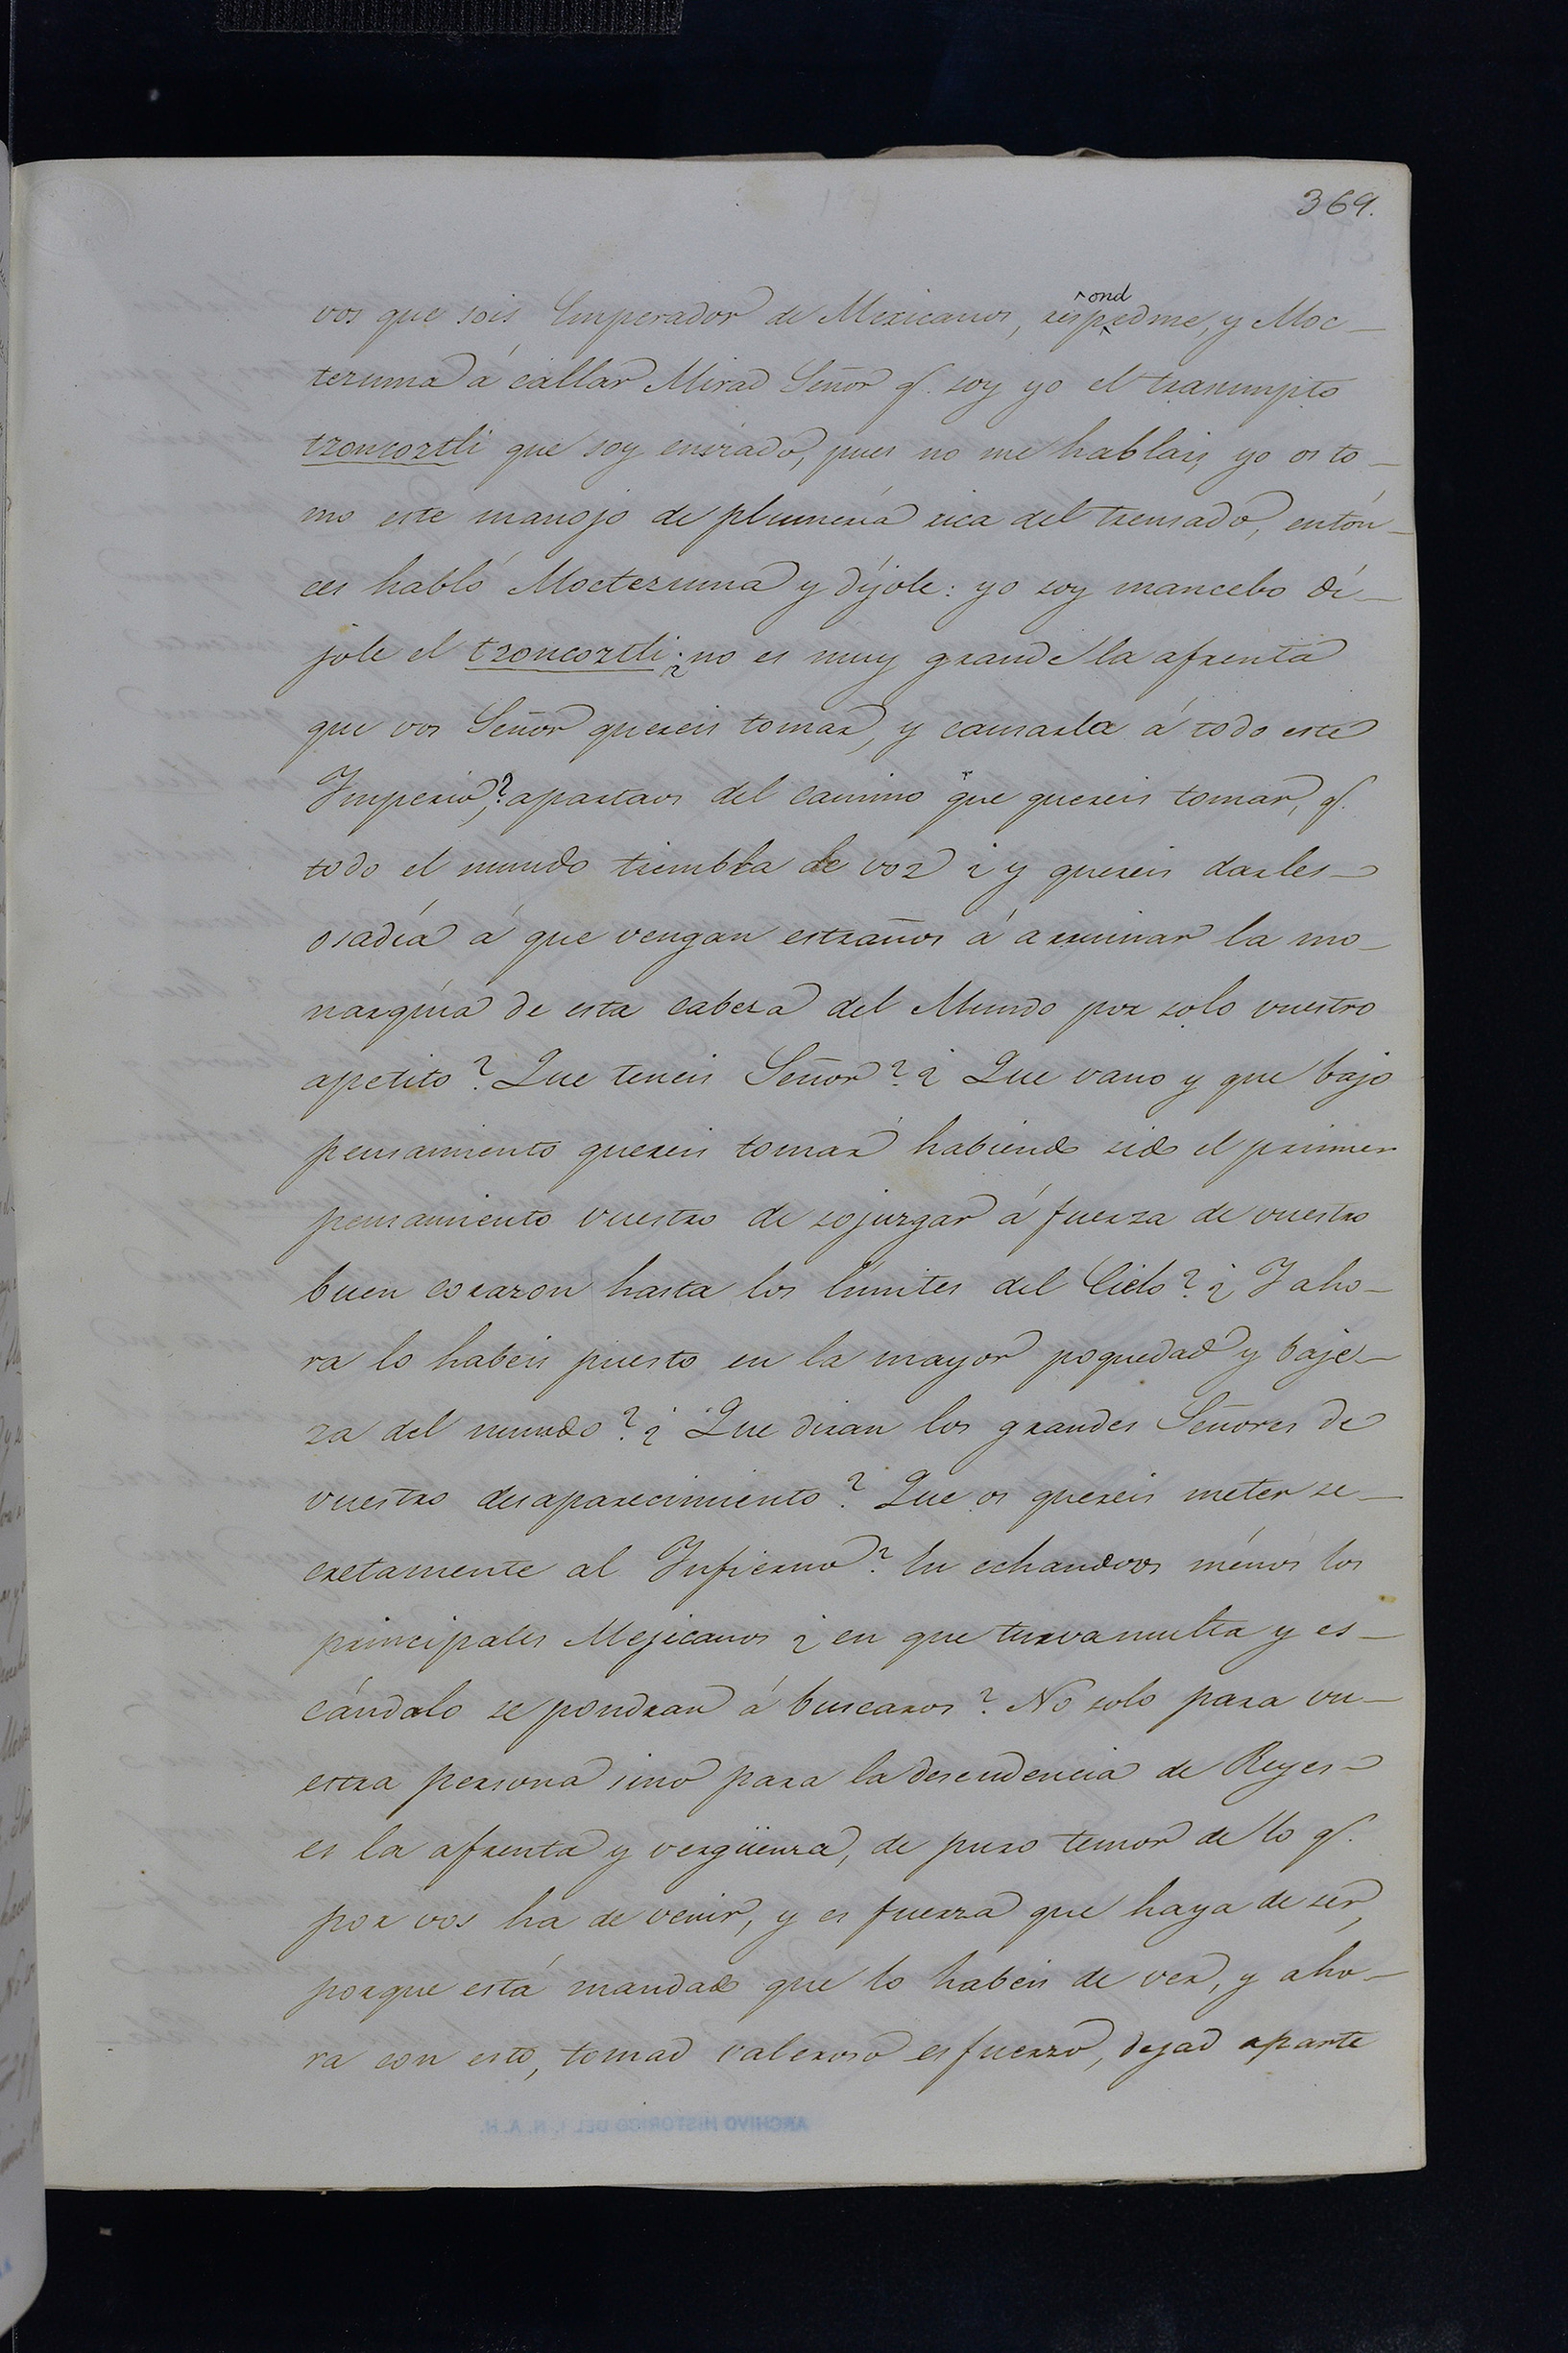 369.
vos que sois Emperador de Mexicanos, resp^ond^edme, y Moc-
tezuma á callar Mirad Señor q.e soy yo el trasumpto
tzoncoztli que soy enviado, pues no me hablais, yo os to-
mo este manojo de plumería rica del trensado, entón-
ces habló Moctezuma y díjole: yo soy mancebo dí-
jole el tzoncoztli: ¿no es muy grande la afrenta
que vos Señor quereis tomar, y causarla á todo este
Imperio?, apartaos del camino que quereis tomar, q.e
todo el mundo tiembla de voz ¿y quereis darles
osadía á que vengan estraños á arruinar la mo-
narquía de esta cabeza del Mundo por solo vuestro
apetito? Que teneis Señor? ¿Que vano y que bajo
pensamiento quereis tomar habiendo sido el primer
pensamiento vuestro de sojuzgar á fuerza de vuestro
buen corazon hasta los límites del Cielo? ¿Y aho-
ra lo habeis puesto en la mayor poquedad y baje-
za del mundo? ¿Que diran los grandes Señores de
vuestro desaparecimiento? Que os quereis meter se-
cretamente al Infierno? En echandoos ménos los
principales Mejicanos ¿en que turvamulta y es-
cándalo se pondran á buscaros? No solo para vu-
estra persona sino para la desendencia de Reyes
es la afrenta y vergüenza, de puro temor de lo q.e
por vos ha de venir, y es fuerza que haya de ser,
porque está mandado que lo habeis de ver, y aho-
ra con esto, tomad valeroso esfuerzo, dejad aparte
ARCHIVO HISTORICO DEL I. N. A. H.